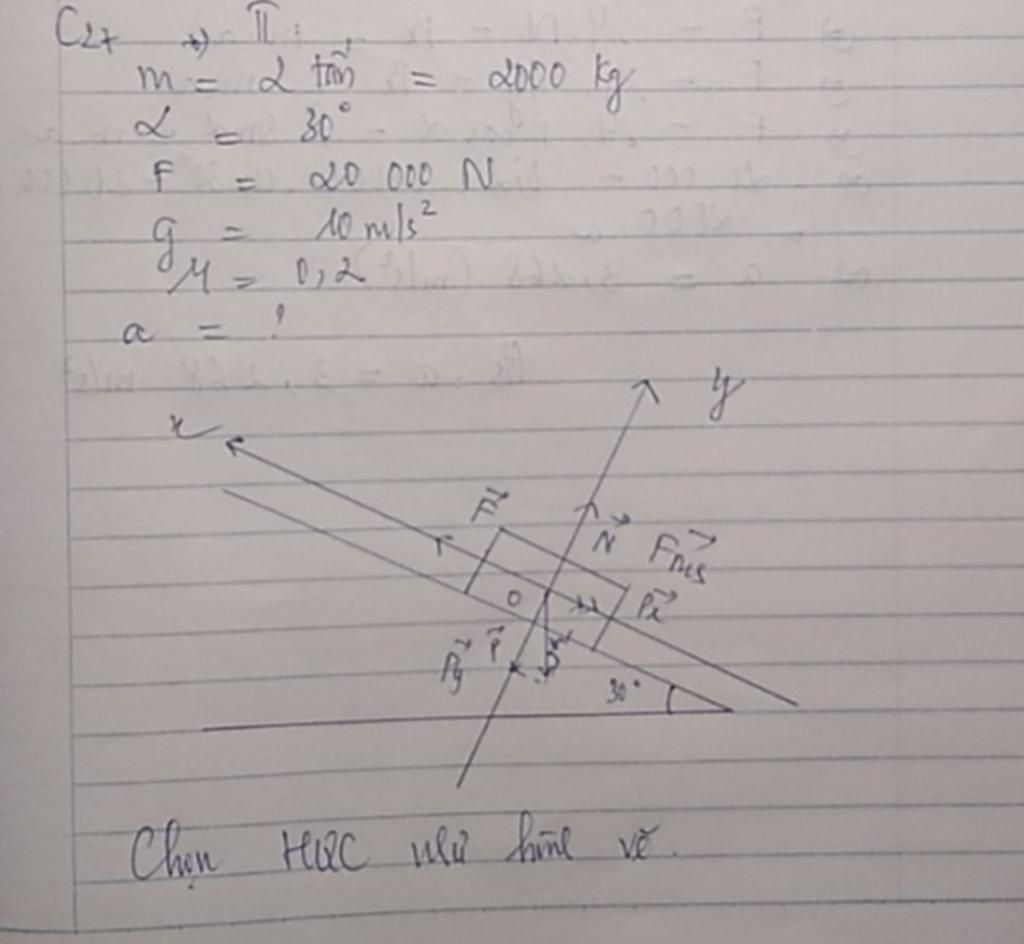 C27 *) II.
m = 2 tấn = 2000 kg
α = 30°
F = 20 000 N
g = 10 m/s²
μ = 0,2
a = ?
x
y
F⃗
N⃗
Fms⃗
O
Px⃗
Py⃗
P⃗
30°
Chọn HQC như hình vẽ.